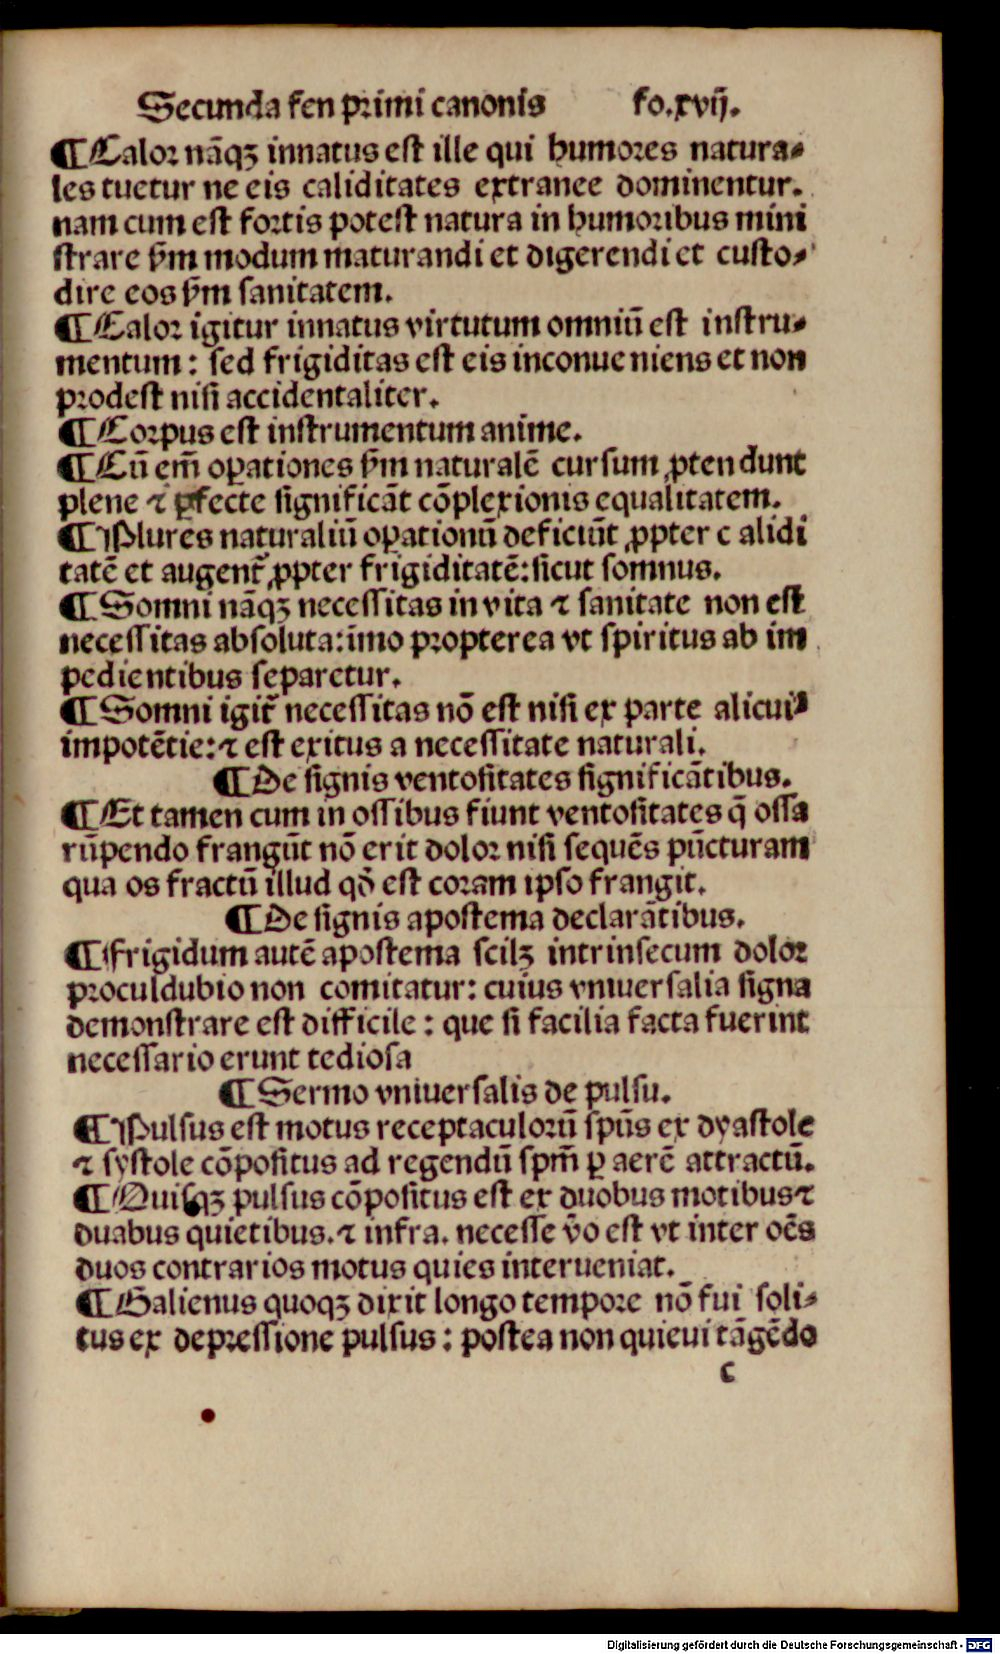 Secunda fen primi canonis fo.xvij.
¶Calor nãqꝫ innatus est ille qui humores natura⸗
les tuetur ne eis caliditates extranee dominentur.
nam cum est fortis potest natura in humoribus mini
strare ẜm modum maturandi et digerendi et custo⸗
dire eos ẜm sanitatem.
¶Calor igitur innatus virtutum omniũ est instru⸗
mentum: sed frigiditas est eis inconue niens et non
prodest nisi accidentaliter.
¶Corpus est instrumentum anime.
¶Cũ em̃ oꝑationes ẜm naturalẽ cursum ꝓtendunt
plene ⁊ ꝑfecte significãt cõplexionis equalitatem.
¶Plures naturaliũ oꝑationũ deficiũt ꝓpter c alidi
tatẽ et augent̃ ꝓpter frigiditatẽ:sicut somnus.
¶Somni nãqꝫ necessitas in vita ⁊ sanitate non est
necessitas absoluta:ĩmo propterea vt spiritus ab im
pedientibus separetur.
¶Somni igit̃ necessitas nõ est nisi ex parte alicuiꝰ
impotẽtie:⁊ est exitus a necessitate naturali.
¶De signis ventositates significãtibus.
¶Et tamen cum in ossibus fiunt ventositates q̃ ossa
rũpendo frangũt nõ erit dolor nisi sequẽs pũcturam
qua os fractũ illud qð est coram ipso frangit.
¶De signis apostema declarãtibus.
¶Frigidum autẽ apostema scilꝫ intrinsecum dolor
proculdubio non comitatur: cuius vniuersalia signa
demonstrare est difficile : que si facilia facta fuerint
necessario erunt tediosa
¶Sermo vniuersalis de pulsu.
¶Pulsus est motus receptaculorũ spũs ex dyastole
⁊ systole cõpositus ad regendũ spm̃ ꝑ aerẽ attractũ.
¶Quisqꝫ pulsus cõpositus est ex duobus motibus⁊
duabus quietibus.⁊ infra. necesse ṽo est vt inter oẽs
duos contrarios motus quies interueniat.
¶Galienus quoqꝫ dixit longo tempore nõ fui soli⸗
tus ex depressione pulsus : postea non quieui tãgẽdo
c
Digitalisierung gefördert durch die Deutsche Forschungsgemeinschaft - DFG